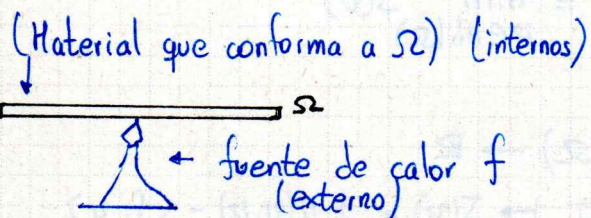 (Material que conforma a Ω) (internos)
Ω
← fuente de calor f
(externo)